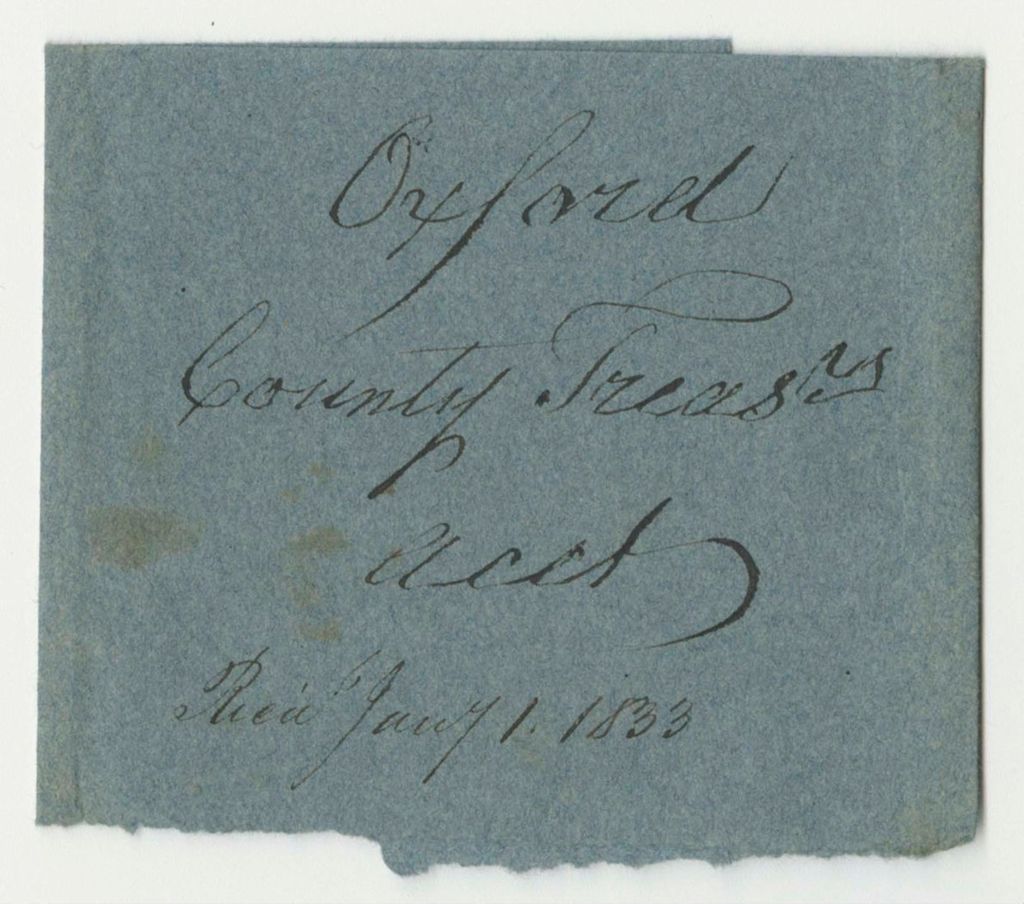 Oxford
County Treasrs
acct
Recd Jany 1. 1833